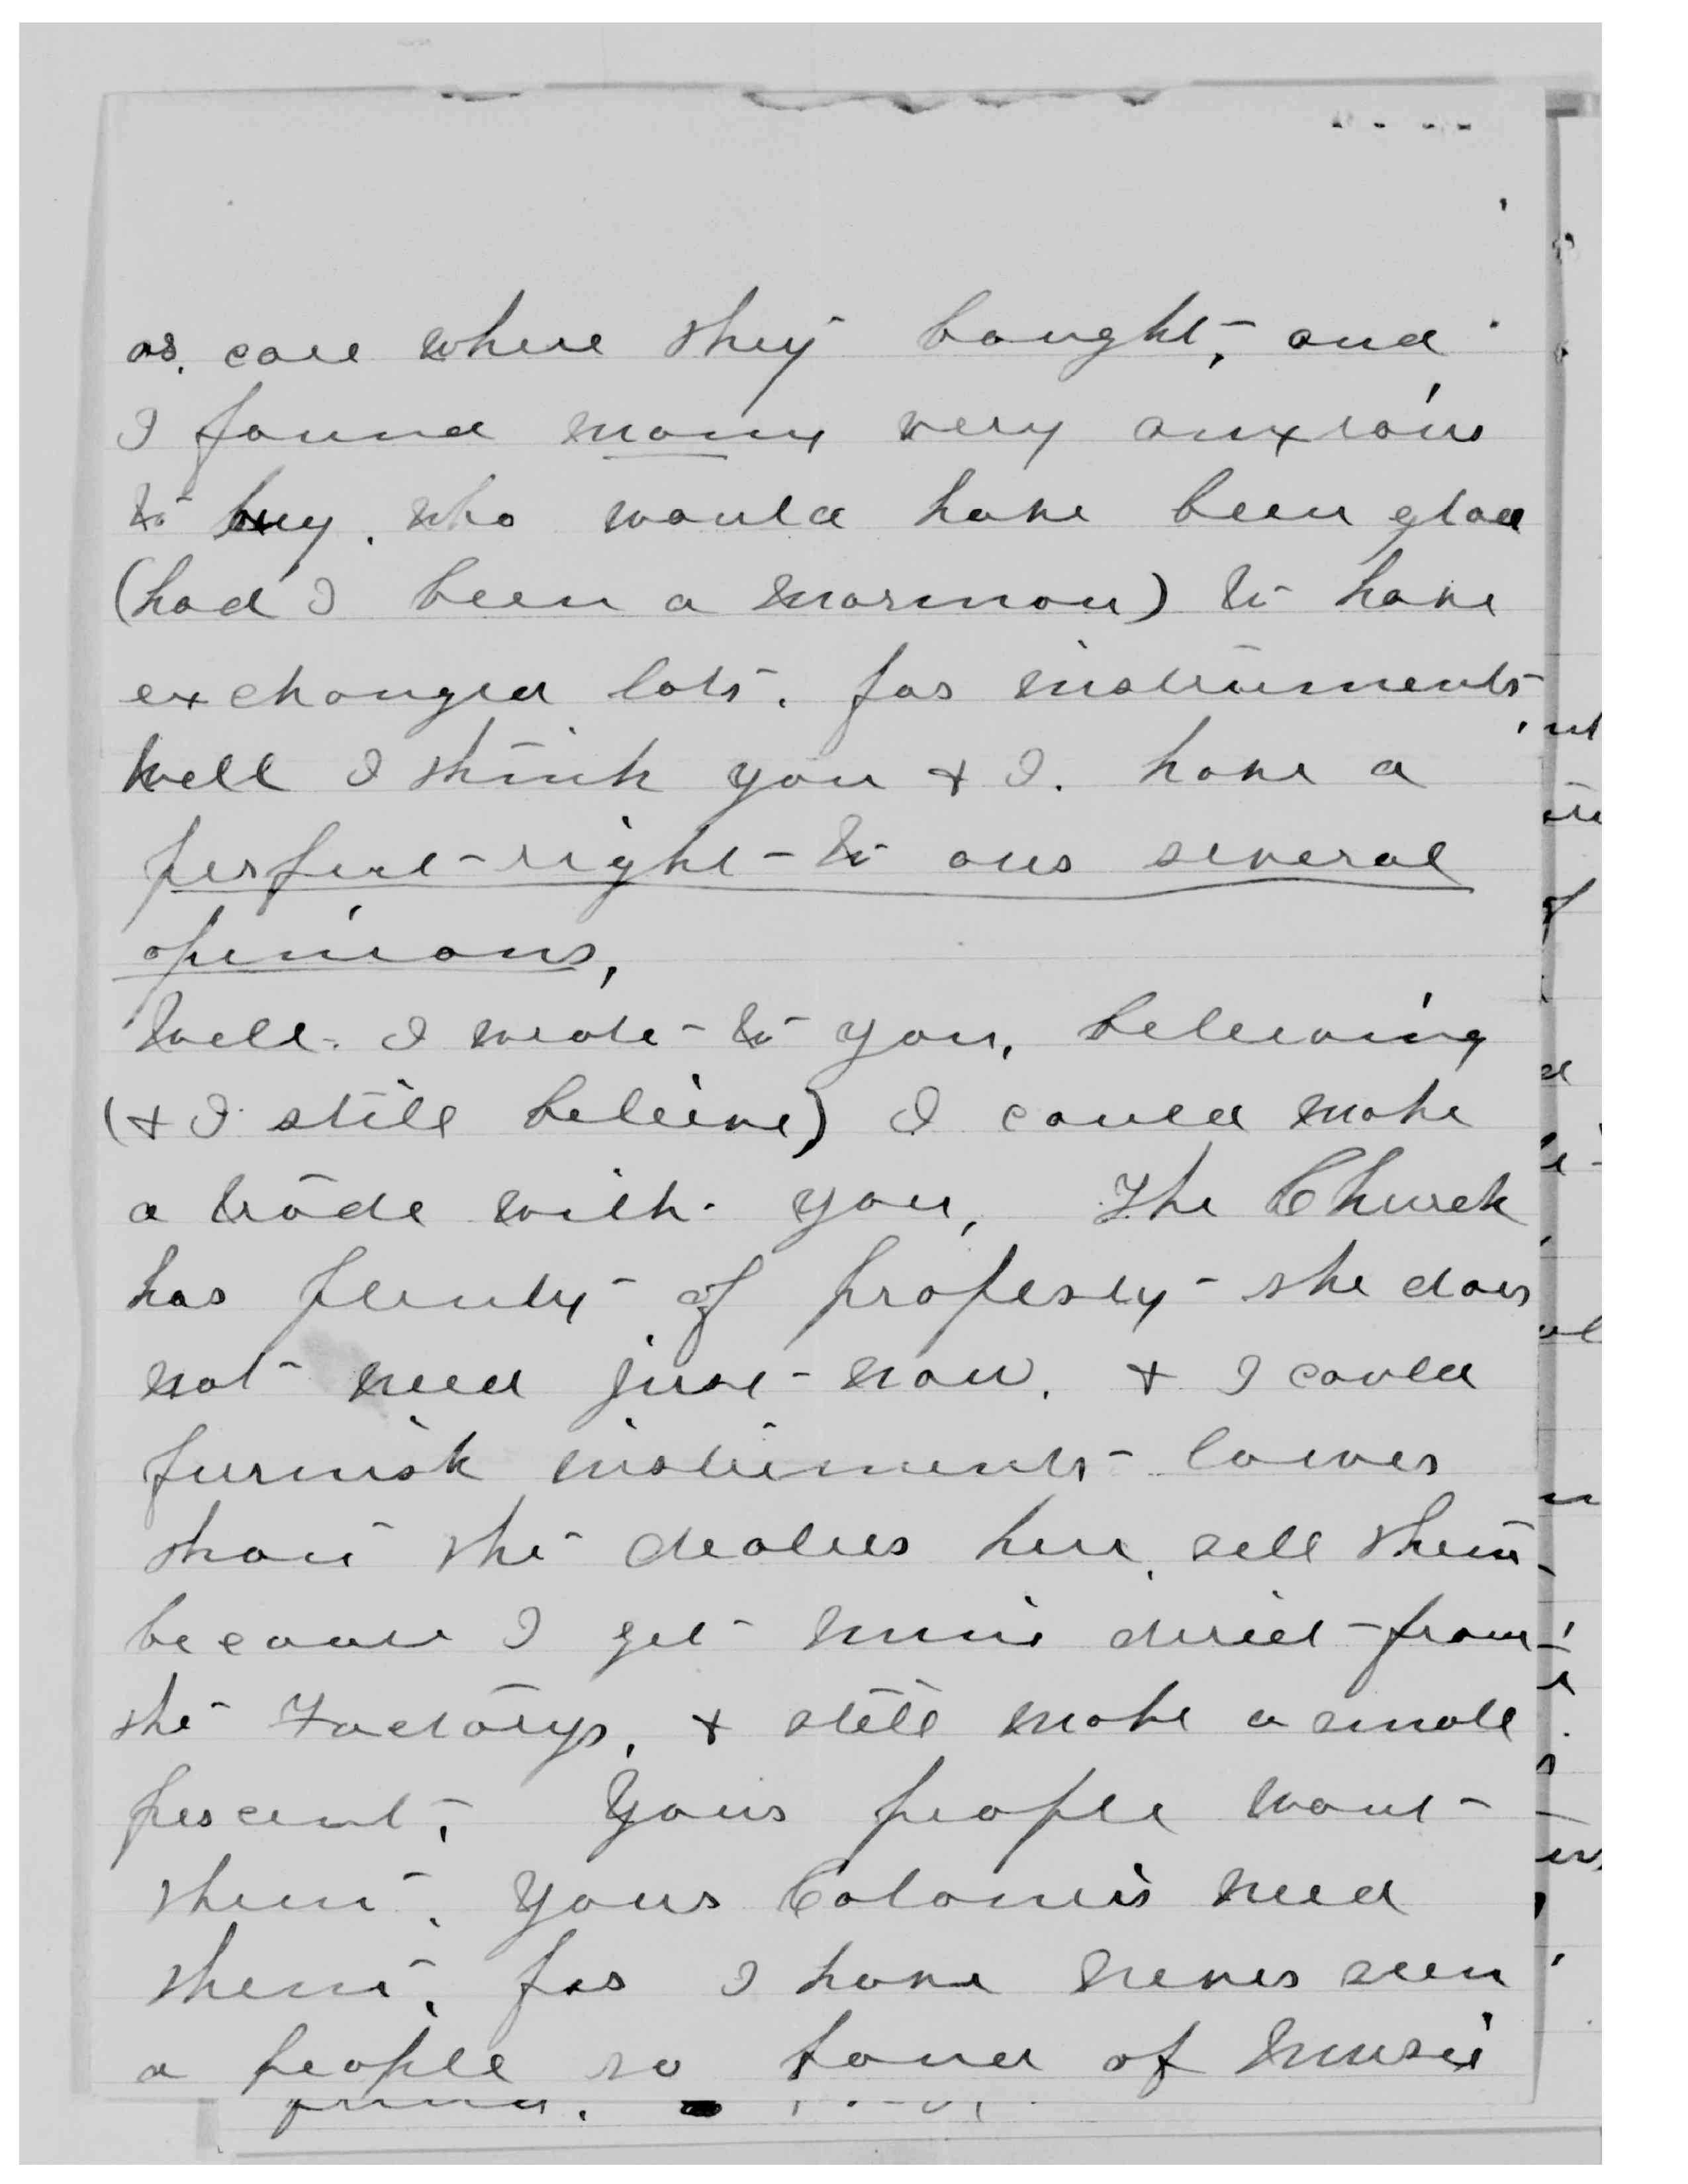 or care where they bought, and
I found many very anxious
to buy. who would have been glad
(had I been a Mormon) to have
exchanged lots. for instruments
Well I think you & I. have a
perfect right to our several
opinions,
Well. I wrote to you, beleiving
(& I still beleive) I could make
a trade with you, The Church
has plenty of property she does
not need just now. & I could
furnish instruments lower
than the dealers here, sell them
because I get mine direct from
the Factorys, & still make a small
percent, Your people want
them, Your Colonies need
them, for I have never seen
a people so fond of Music